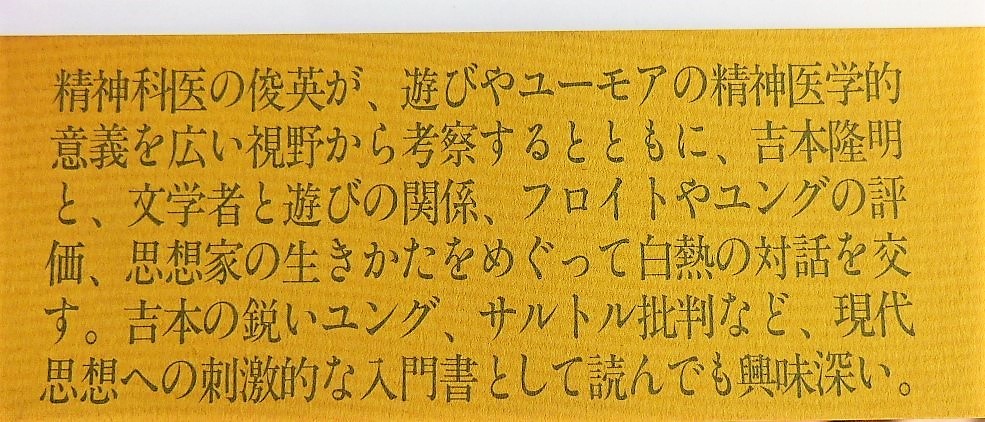 精神科医の俊英が、遊びやユーモアの精神医学的
意義を広い視野から考察するとともに、吉本隆明
と、文学者と遊びの関係、フロイトやユングの評
価、思想家の生きかたをめぐって白熱の対話を交
す。吉本の鋭いユング、サルトル批判など、現代
思想への刺激的な入門書として読んでも興味深い。